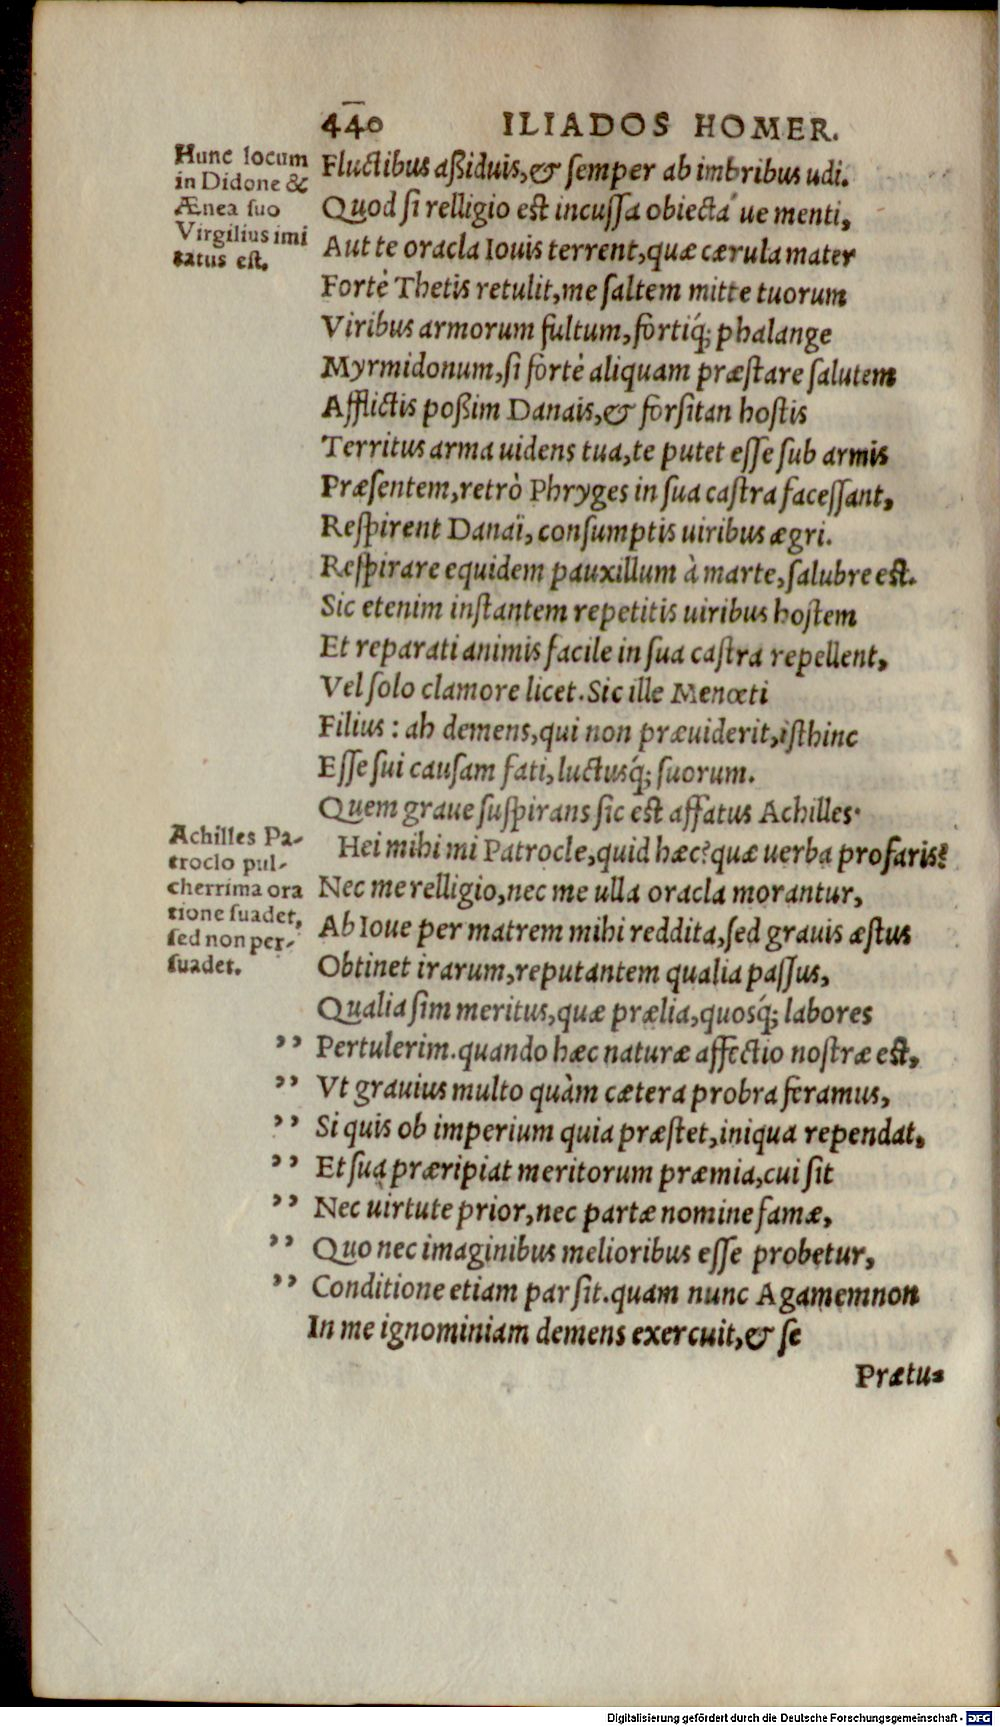 440 ILIADOS HOMER.
Hunc locum
in Didone &
Ænea suo
Virgilius imi
tatus est.
Fluctibus aßiduis, & semper ab imbribus udi.
Quod si relligio est incussa obiectá ue menti,
Aut te oracla Iouis terrent, quæ cærula mater
Fortè Thetis retulit, me saltem mitte tuorum
Viribus armorum fultum, fortiq́; phalange
Myrmidonum, si fortè aliquam præstare salutem
Afflictis poßim Danais, & forsitan hostis
Territus arma uidens tua, te putet esse sub armis
Præsentem, retrò Phryges in sua castra facessant,
Respirent Danaï, consumptis uiribus ægri.
Respirare equidem pauxillum à marte, salubre est.
Sic etenim instantem repetitis uiribus hostem
Et reparati animis facile in sua castra repellent,
Vel solo clamore licet. Sic ille Menœti
Filius: ah demens, qui non præuiderit, isthinc
Esse sui causam fati, luctusq́; suorum.
Quem graue suspirans sic est affatus Achilles.
Achilles Pa-
troclo pul-
cherrima ora
tione suadet,
sed non per-
suadet.
Hei mihi mi Patrocle, quid hæc? quæ uerba profaris?
Nec me relligio, nec me ulla oracla morantur,
Ab Ioue per matrem mihi reddita, sed grauis æstus
Obtinet irarum, reputantem qualia passus,
Qualia sim meritus, quæ prælia, quosq́; labores
” Pertulerim. quando hæc naturæ affectio nostræ est,
” Vt grauius multo quàm cætera probra feramus,
” Si quis ob imperium quia præstet, iniqua rependat,
” Et sua præripiat meritorum præmia, cui sit
” Nec uirtute prior, nec partæ nomine famæ,
” Quo nec imaginibus melioribus esse probetur,
” Conditione etiam par sit. quam nunc Agamemnon
In me ignominiam demens exercuit, & se
Prætu-
Digitalisierung gefördert durch die Deutsche Forschungsgemeinschaft - DFG